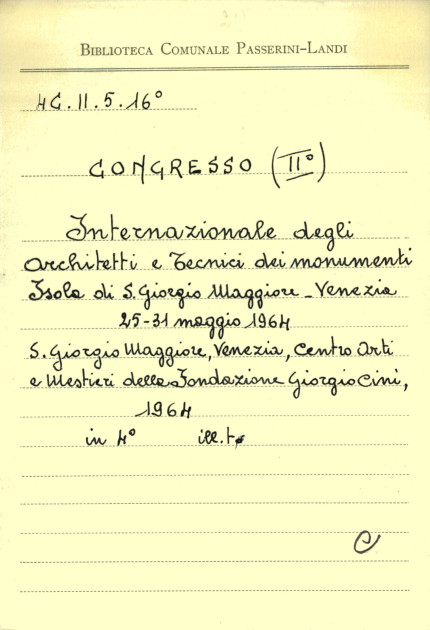 BIBLIOTECA COMUNALE PASSERINI-LANDI
4C.II.5.16°
CONGRESSO (II°)
Internazionale degli
Architetti e Tecnici dei monumenti
Isola di S. Giorgio Maggiore - Venezia
25-31 maggio 1964
S. Giorgio Maggiore, Venezia, Centro Arti
e Mestieri della Fondazione Giorgio Cini,
1964
in 4° ill.t.